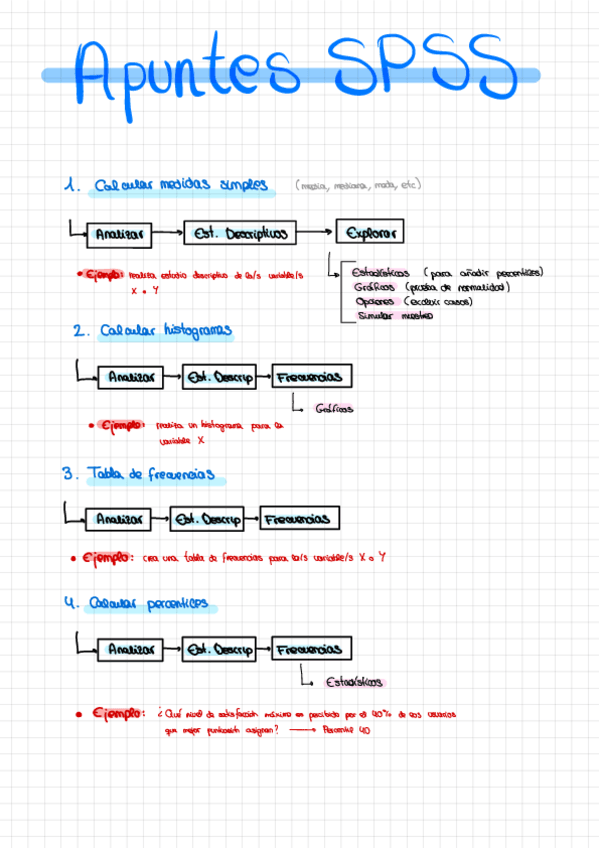 Apuntes SPSS
1. Calcular medidas simples (media, mediana, moda, etc)
Analizar → Est. Descriptivos → Explorar
• Ejemplo: realiza estudio descriptivo de la/s variable/s
X o Y
Estadísticos (para añadir percentiles)
Gráficos (prueba de normalidad)
Opciones (excluir casos)
Simular muestreo
2. Calcular histogramas
Analizar → Est. Descrip → Frecuencias
Gráficos
• Ejemplo: realiza un histograma para la
variable X
3. Tabla de frecuencias
Analizar → Est. Descrip → Frecuencias
• Ejemplo: crea una tabla de frecuencias para la/s variable/s X o Y
4. Calcular percentiles
Analizar → Est. Descrip → Frecuencias
Estadísticos
• Ejemplo: ¿Qué nivel de satisfacción máximo es percibido por el 40% de los usuarios
que mejor puntuación asignan? → Percentil 40